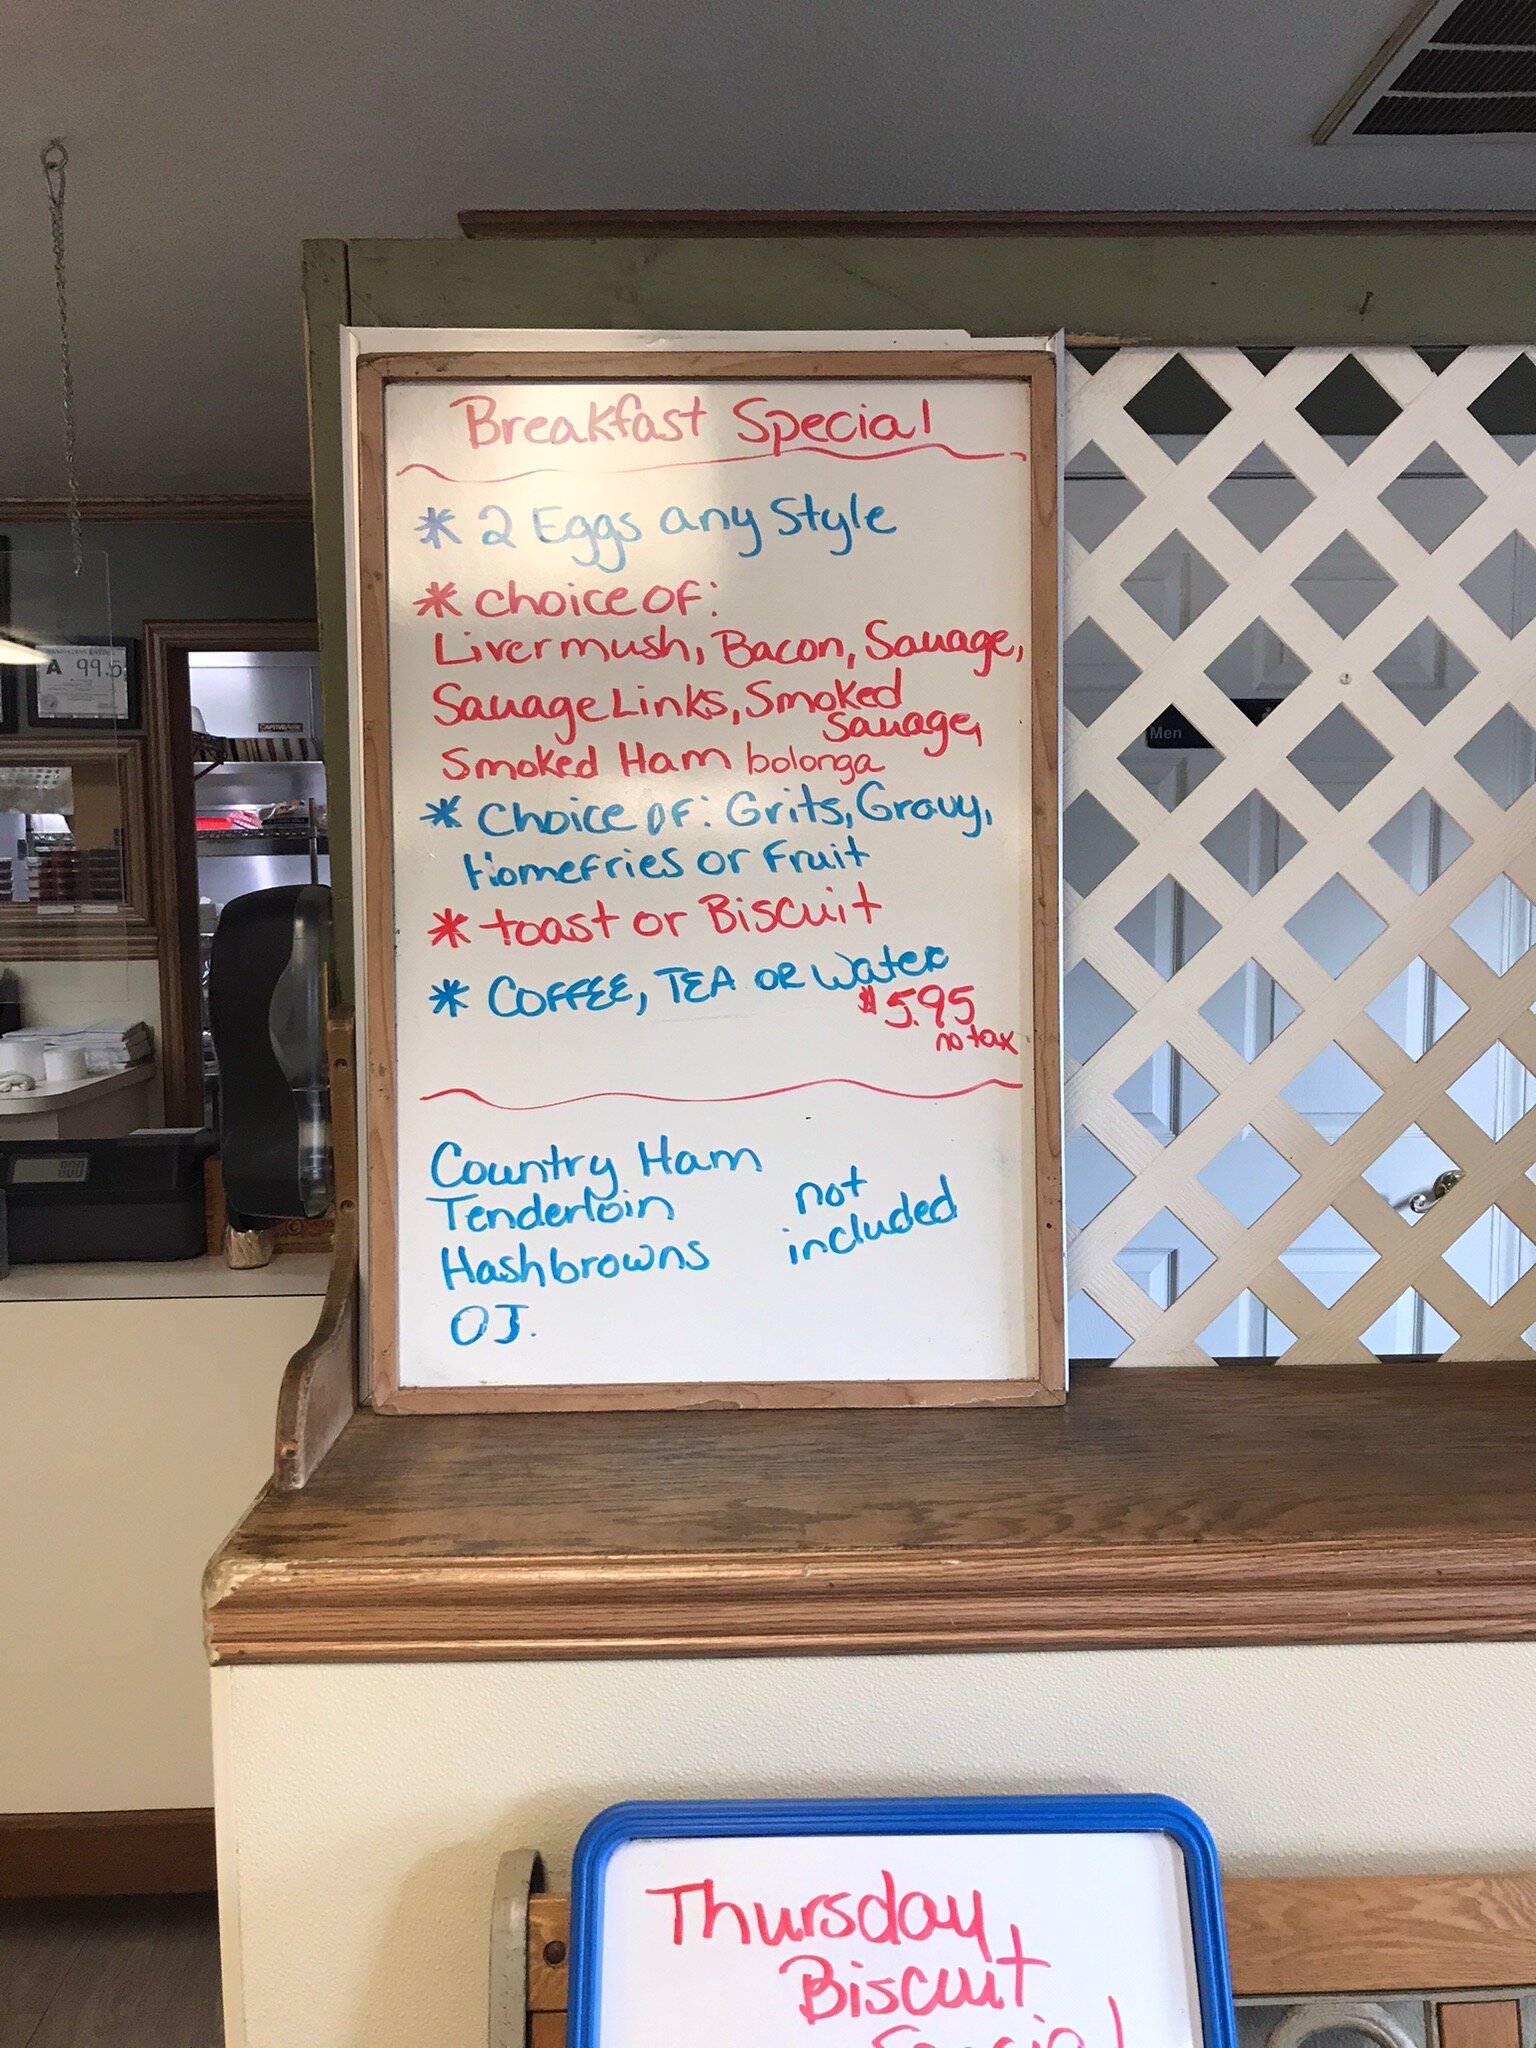 Breakfast Special
* 2 Eggs any Style
* choice of:
Livermush, Bacon, Sauage,
Sauage Links, Smoked
Sauage,
Smoked Ham bolonga
* choice of: Grits, Gravy,
Homefries or Fruit
* toast or Biscuit
* COFFEE, TEA OR Water
$5.95
no tax
Country Ham
Tenderloin
not
included
Hashbrowns
OJ.
A 99.5
Men
Thursday
Biscuit
Special